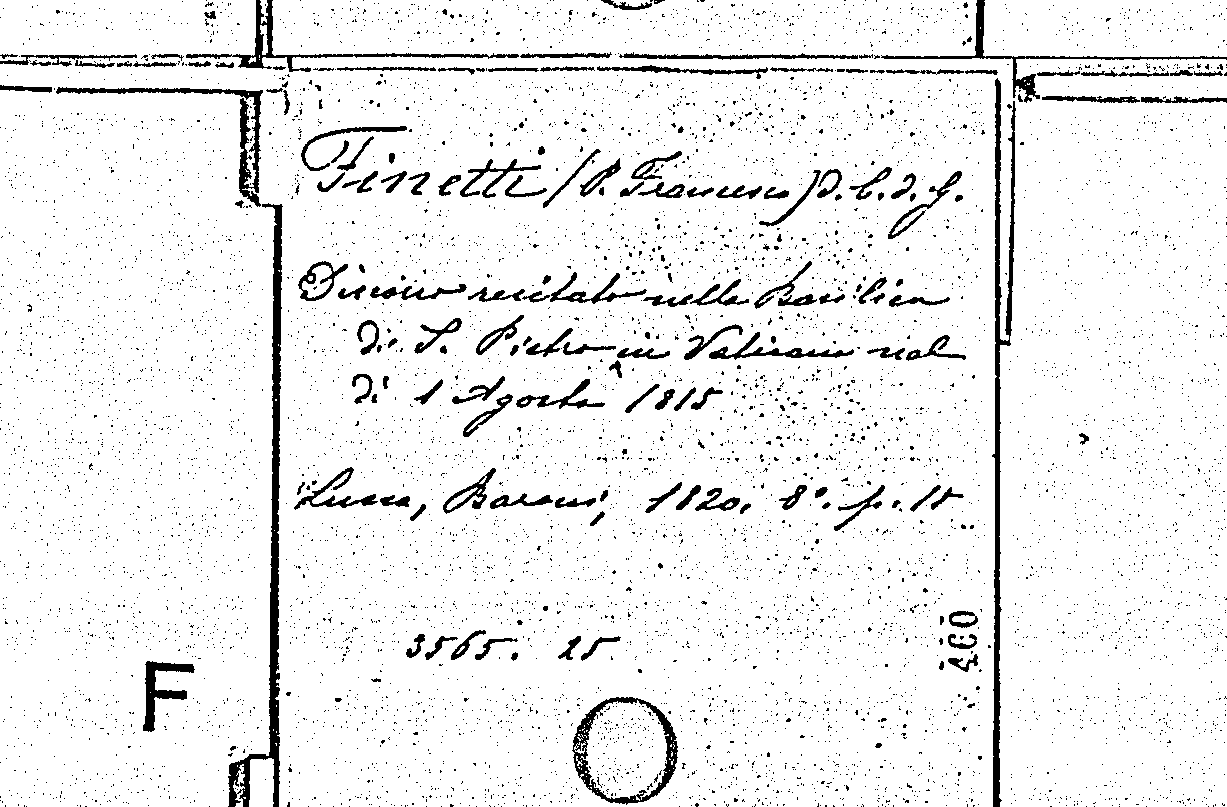 Finetti (P. Francesco) d. C. d. G.
Discorso recitato nella Basilica
di S. Pietro in Vaticano nel
dì 1 Agosto 1815
Lucca, Baroni, 1820. 8°. p. 15
3565. 25
460
F